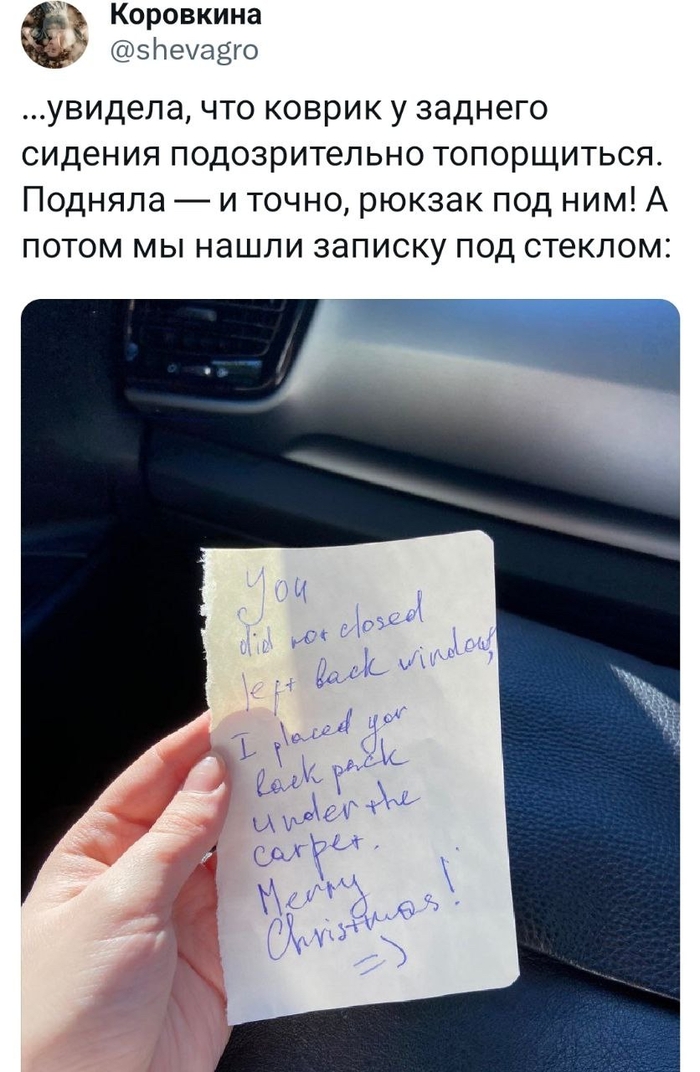 Коровкина
@shevagro
...увидела, что коврик у заднего
сидения подозрительно топорщиться.
Подняла — и точно, рюкзак под ним! А
потом мы нашли записку под стеклом:
You
did not closed
left back window,
I placed yor
back pack
under the
carpet.
Merry
Christmas!
=)